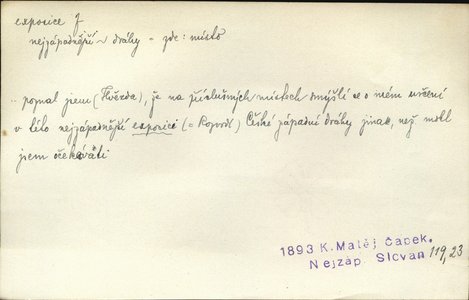 exposice f
nejzápadnější ~ dráhy - zde: místo
.. poznal jsem (Hvězda), že na příslušných místech smýšlí se o mém určení
v této nejzápadnější exposici (= ) České západní dráhy jinak, než mohl
jsem očekávati
1893 K.Matěj Čapek.
Nejzáp. Slovan 119,23